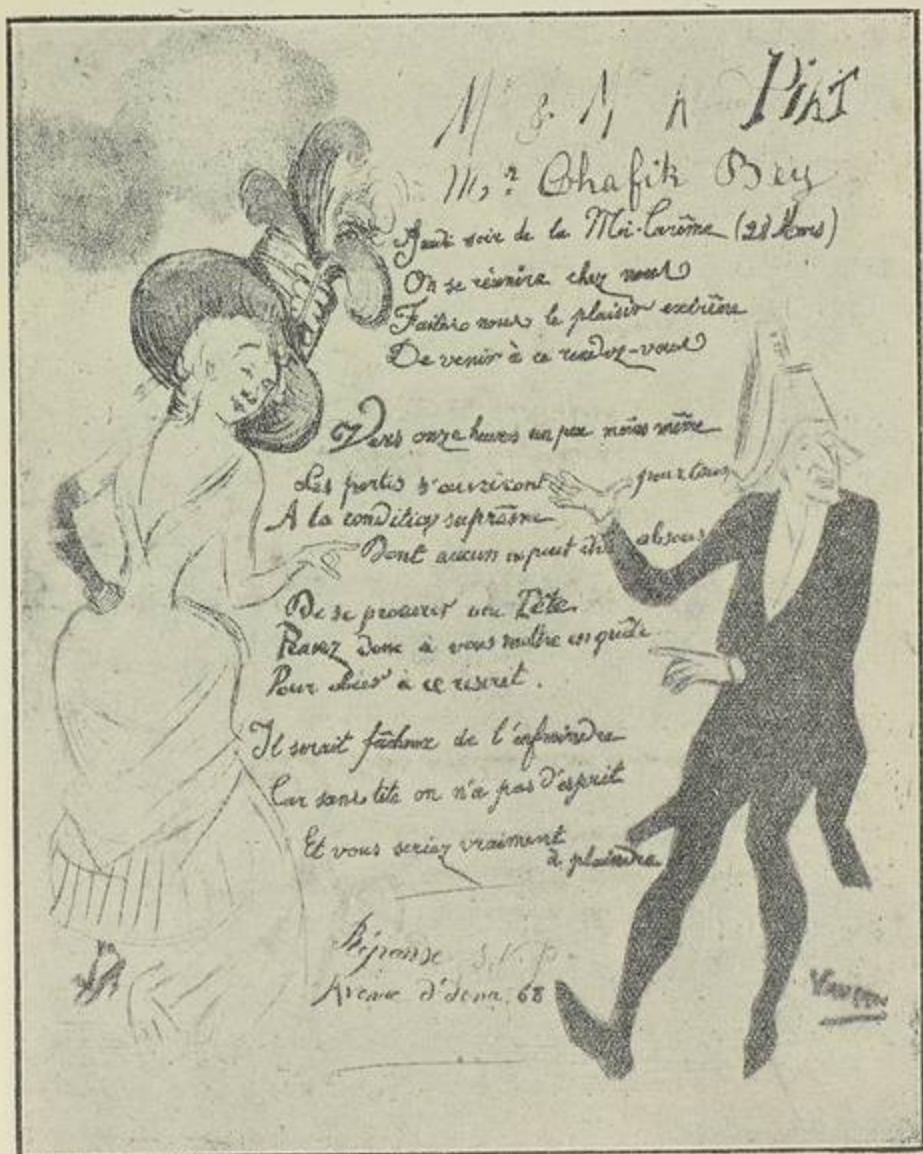 M & M A PiAT
Mr. Chafik Bey
Jeudi soir de la Mi-Carême (28 Mars)
On se réunira chez nous
Faites nous le plaisir extrême
De venir à ce rendez-vous
Vers onze heures un peu moins même
Les portes s'ouvriront pour tous
A la condition suprême
Dont aucun ne peut être absous
De se procurer une Tête.
Pensez donc à vous mettre en quête
Pour obéir à ce rescrit.
Il serait fâcheux de l'enfreindre
Car sans tête on n'a pas d'esprit
Et vous seriez vraiment
à plaindre
Réponse S.V.P.
Avenue d'Iéna. 68